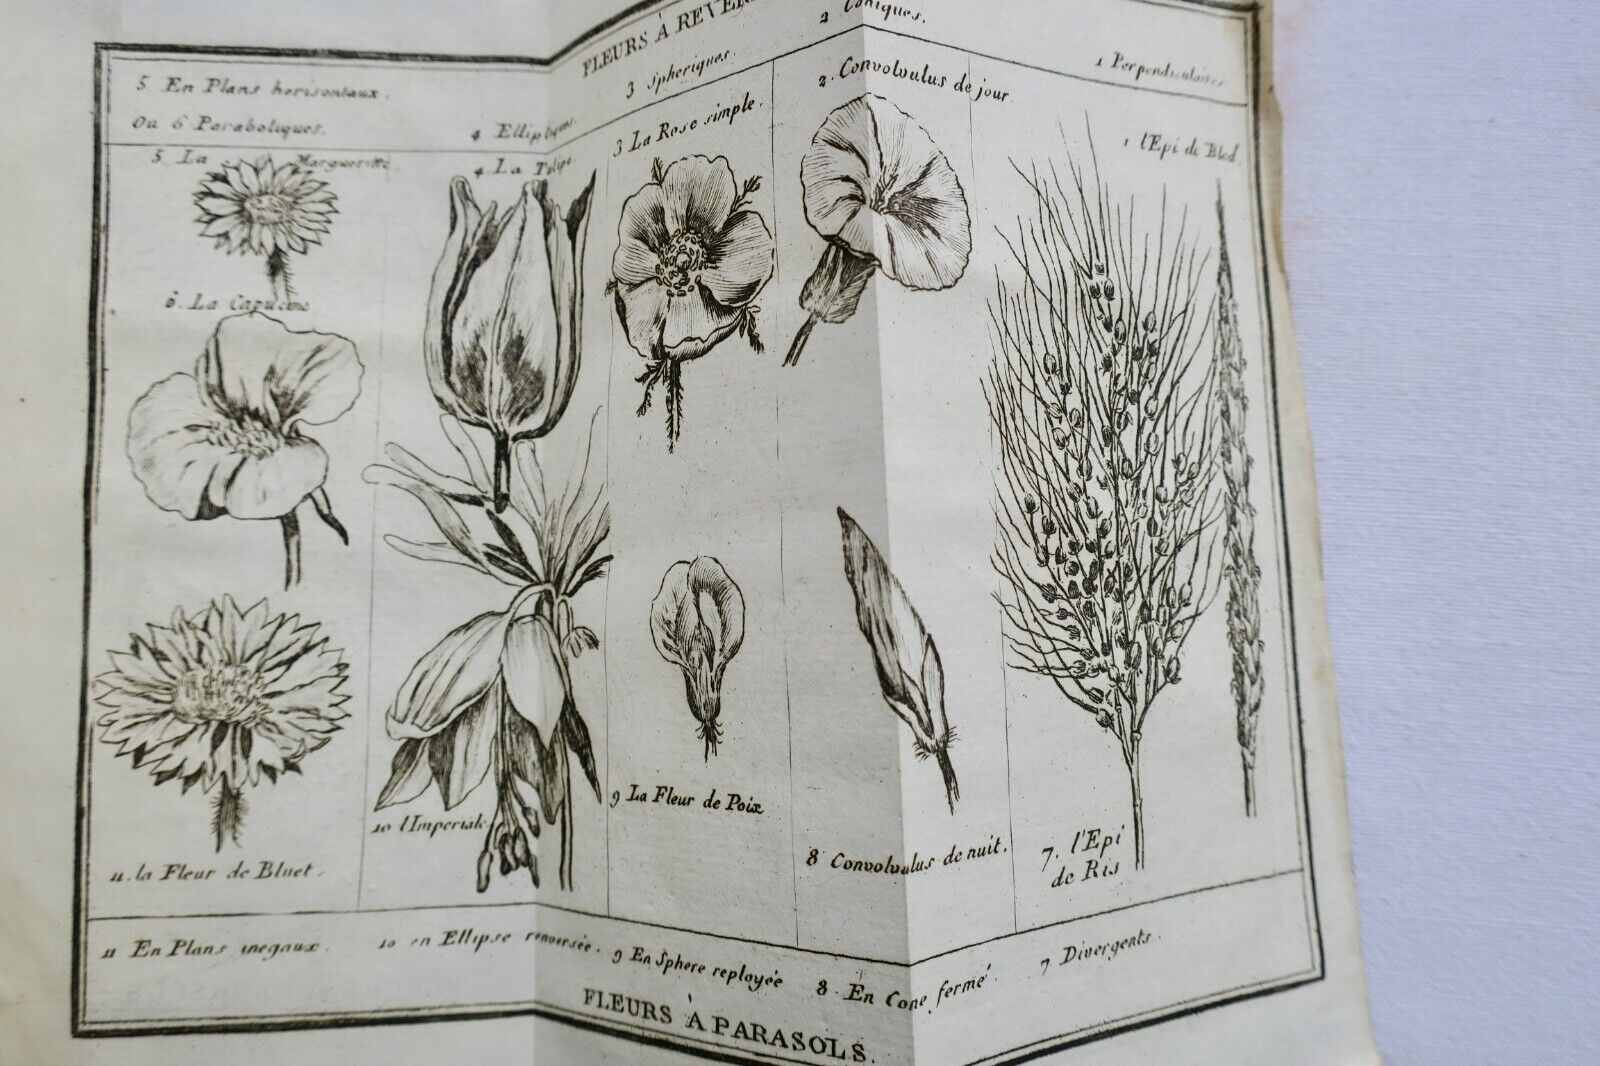 FLEURS À
5. En Plans horisontaux.
Ou 6 Paraboliques.
4 Elliptiques.
3 Spheriques.
2 Coniques.
1 Perpendiculaires
5. La Margueritte.
4. La Tulipe
3 La Rose simple.
2. Convolvulus de jour.
1 l'Epi de Bled.
6. La Capucine
11. la Fleur de Bluet.
10 l'Imperiale
9 La Fleur de Poix
8 Convolvulus de nuit.
7. l'Epi
de Ris
11 En Plans inegaux.
10 en Ellipse renversée.
9 En Sphere reployée
8. En Cone fermé
7 Divergents.
FLEURS À PARASOLS.